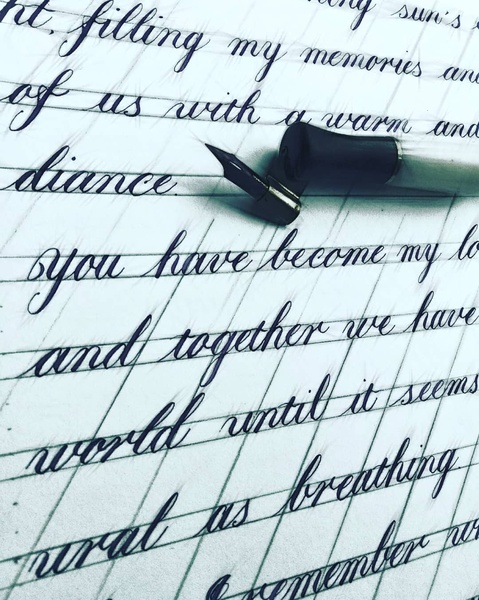 sun's
filling my memories
of us with a warm and
diance
You have become my
and together we have
world until it seems
ural as breathing
remember